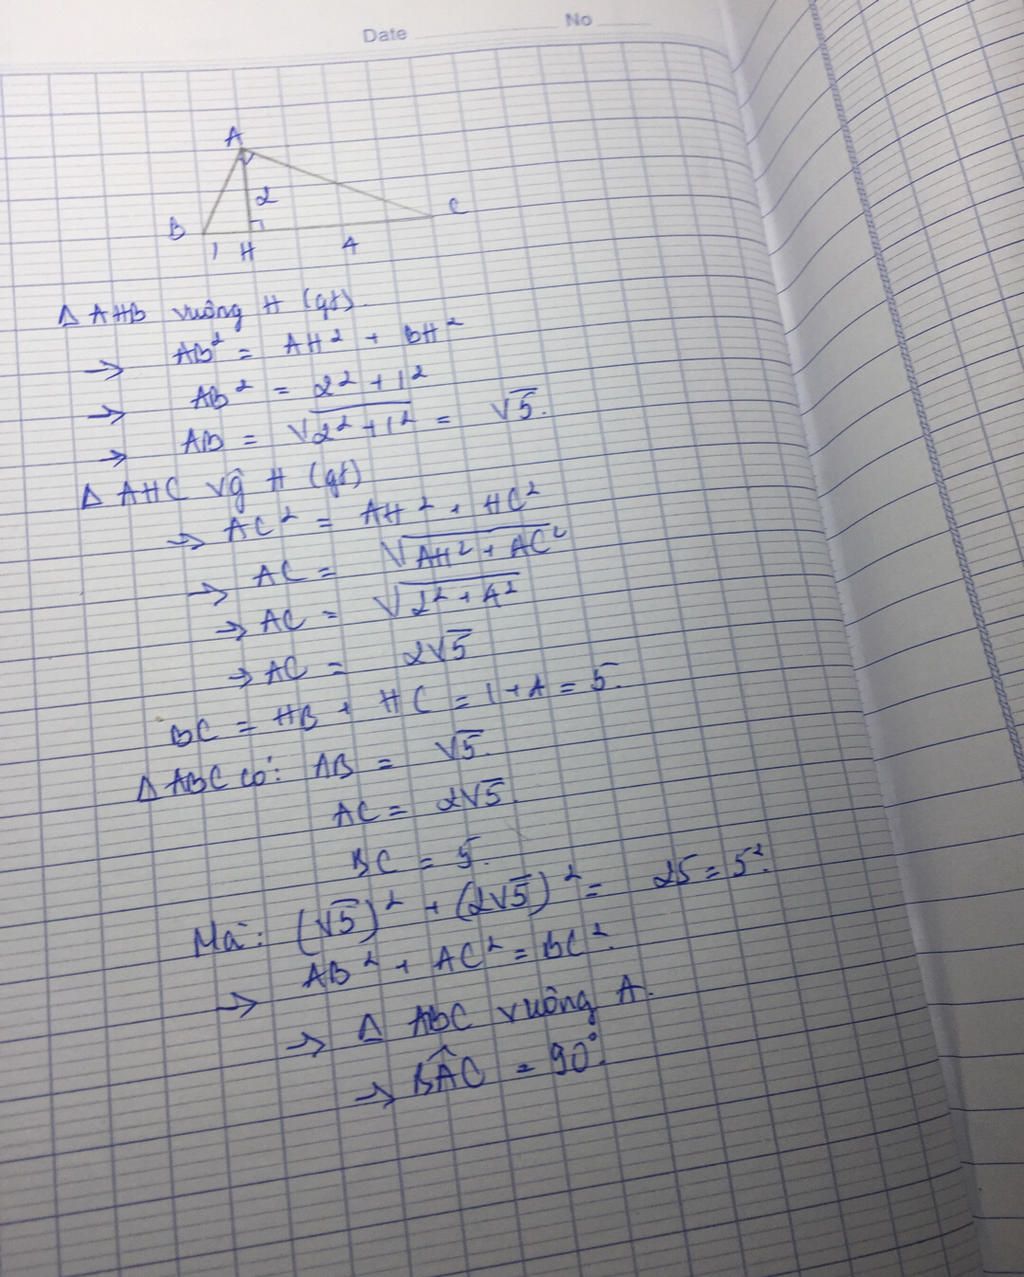 Date No
A
2
B C
1 H 4
Δ AHB vuông H (gt).
→ AB² = AH² + BH²
→ AB² = 2² + 1²
→ AB = √2² + 1² = √5.
Δ AHC vg H (gt)
→ AC² = AH² + HC²
→ AC = √AH² + AC²
→ AC = √2² + 4²
→ AC = 2√5
BC = HB + HC = 1 + 4 = 5.
Δ ABC có: AB = √5.
AC = 2√5.
BC = 5.
Mà: (√5)² + (2√5)² = 25 = 5².
→ AB² + AC² = BC².
→ Δ ABC vuông A.
→ BÂC = 90°.